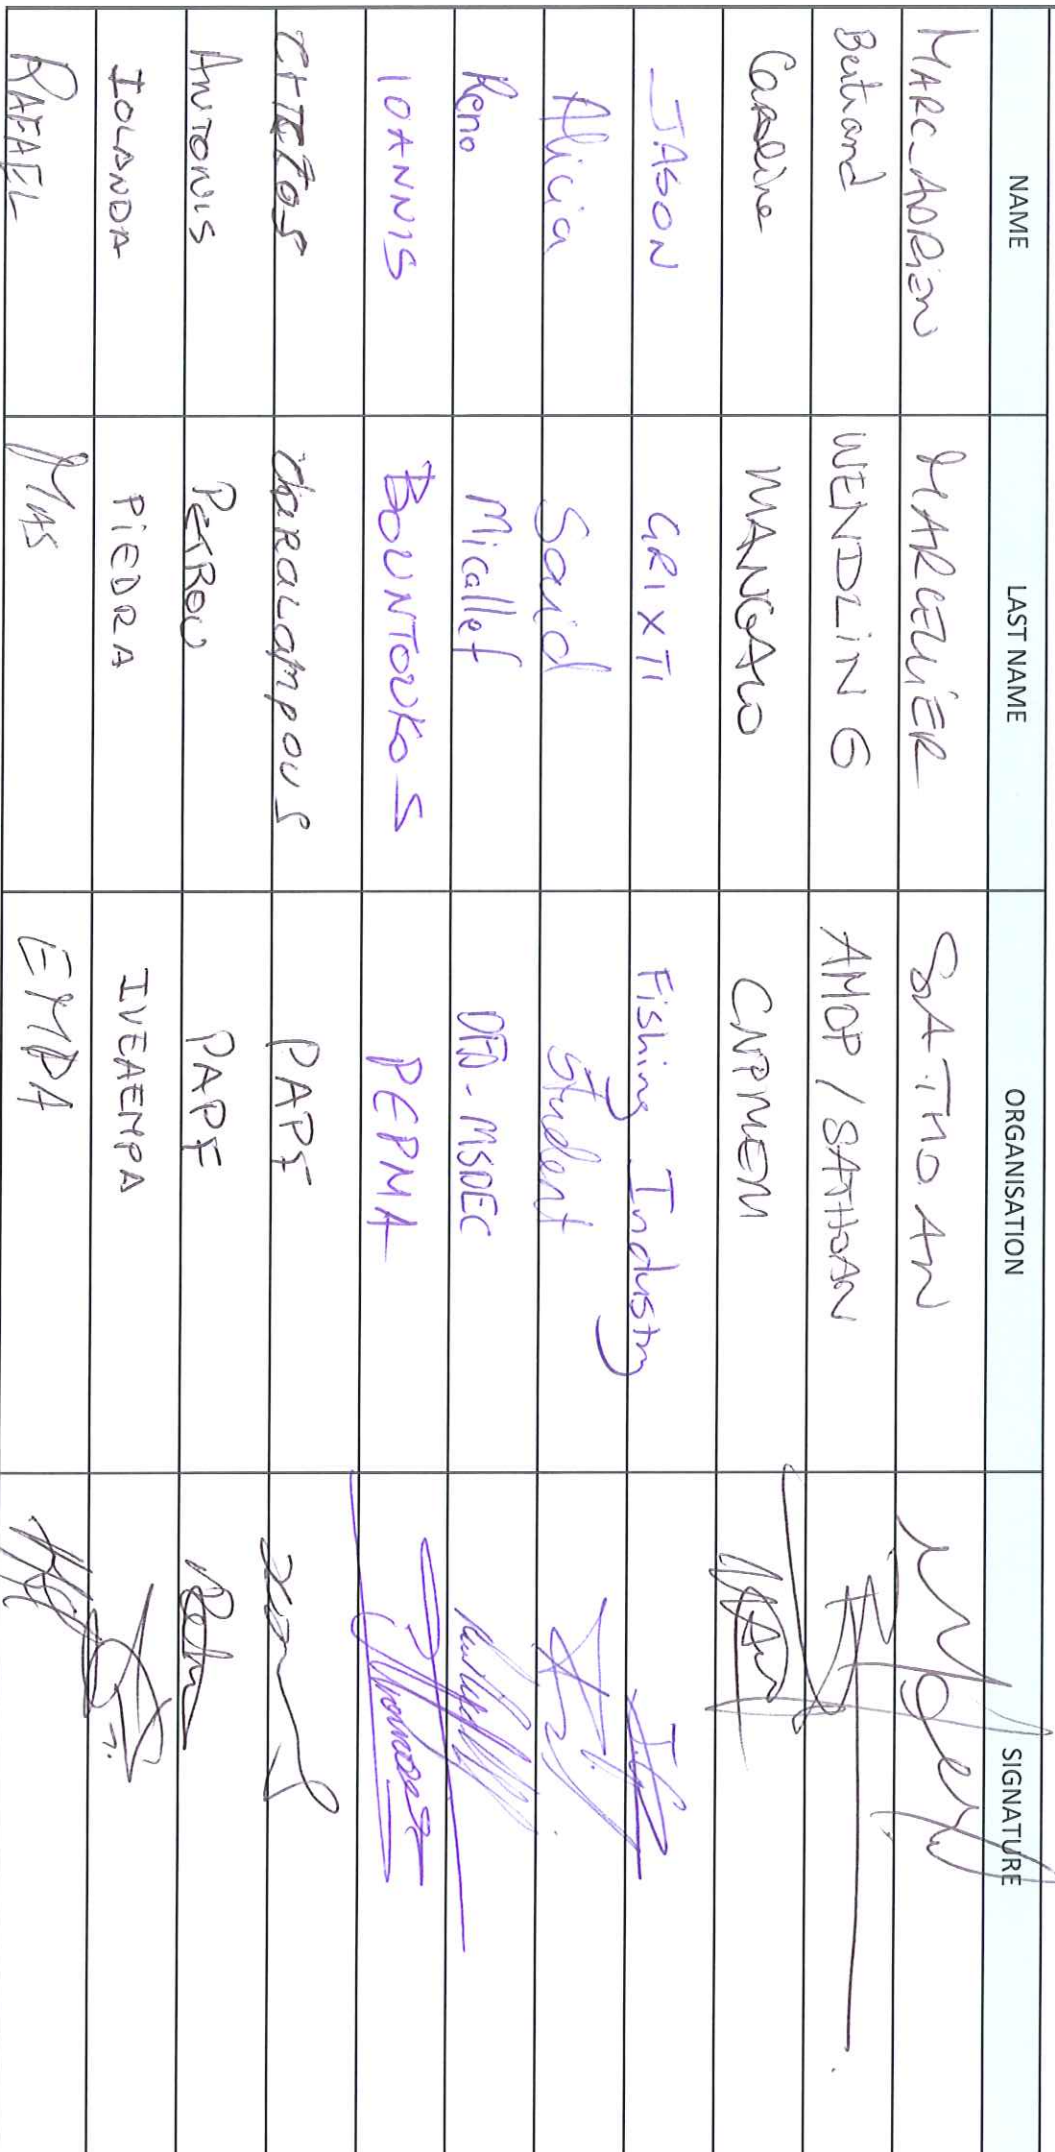 NAME LAST NAME ORGANISATION SIGNATURE
MARC_ADRIEN MARCELLIER SATHOAN
Bertrand WENDLING AMOP / SATHOAN
Caroline MANGALO CNPMEM
JASON GRIXTI Fishing Industry
Alicia Said Student
Reno Micallef DFA-MSDEC
IOANNIS BOUNTOUKOS PEPMA
charalampous PAPF
ANTONIS PETROU PAPF
IOLANDA PIEDRA IVEAEMPA
RAFAEL MAS EMPA